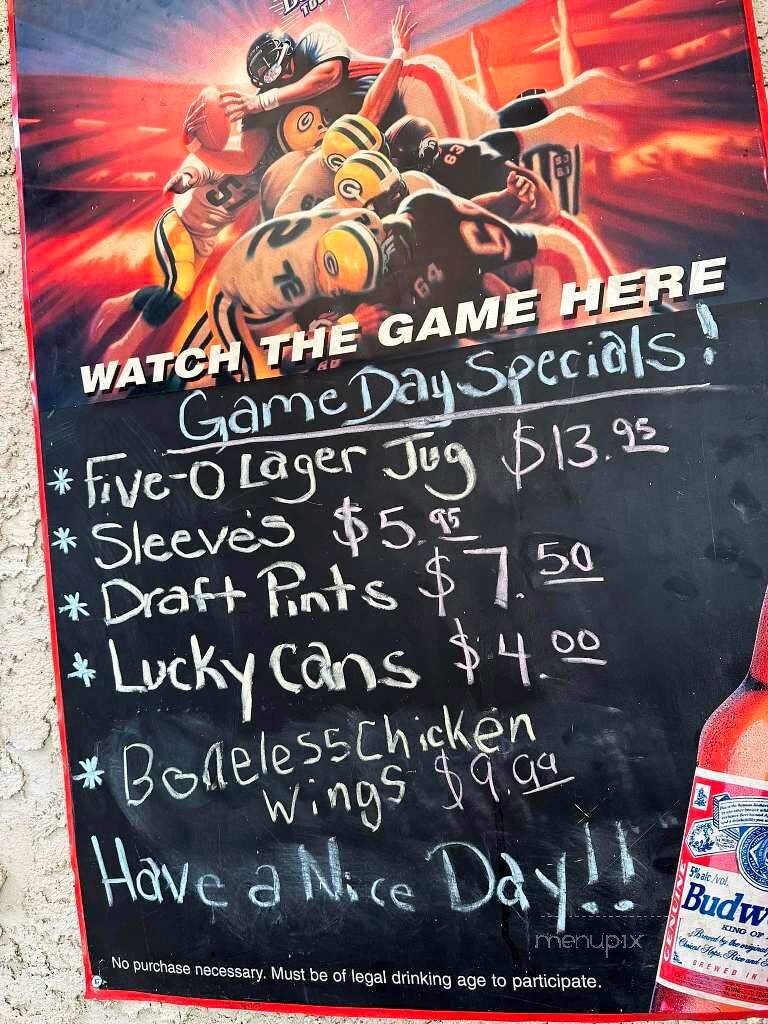 WATCH THE GAME HERE
Game Day Specials!
* Five-O Lager Jug $13.95
* Sleeve's $5.95
* Draft Pints $7.50
* Lucky Cans $4.00
* Boneless Chicken
Wings $9.99
Have a Nice Day!!
5% alc./vol.
GENUINE
Budw
KING OF
BREWED IN
menupix
No purchase necessary. Must be of legal drinking age to participate.